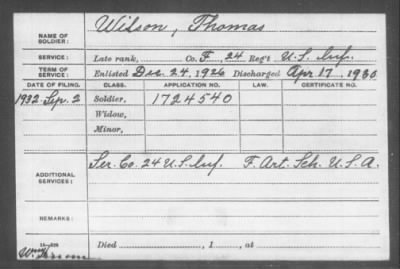 NAME OF SOLDIER: Wilson, Thomas
SERVICE: Late rank, Co. F, 24 Reg't U.S. Inf.
TERM OF SERVICE: Enlisted Dec. 24, 1926 Discharged Apr. 17, 1930
DATE OF FILING. CLASS. APPLICATION NO. LAW. CERTIFICATE NO.
1932 Sep. 2 Soldier, 1724540
Widow,
Minor,
ADDITIONAL SERVICES: Ser. Co. 24 U.S. Inf. F. Art. Sch. U.S.A.
REMARKS:
Died , 1 , at